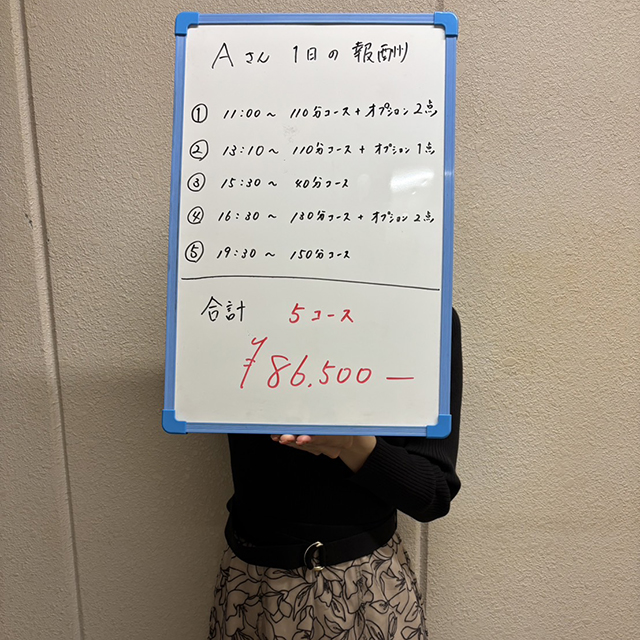 Aさん 1日の報酬
① 11:00〜 110分コース+オプション2点
② 13:10〜 110分コース+オプション1点
③ 15:30〜 40分コース
④ 16:30〜 130分コース+オプション2点
⑤ 19:30〜 150分コース
合計 5コース
¥86,500ー